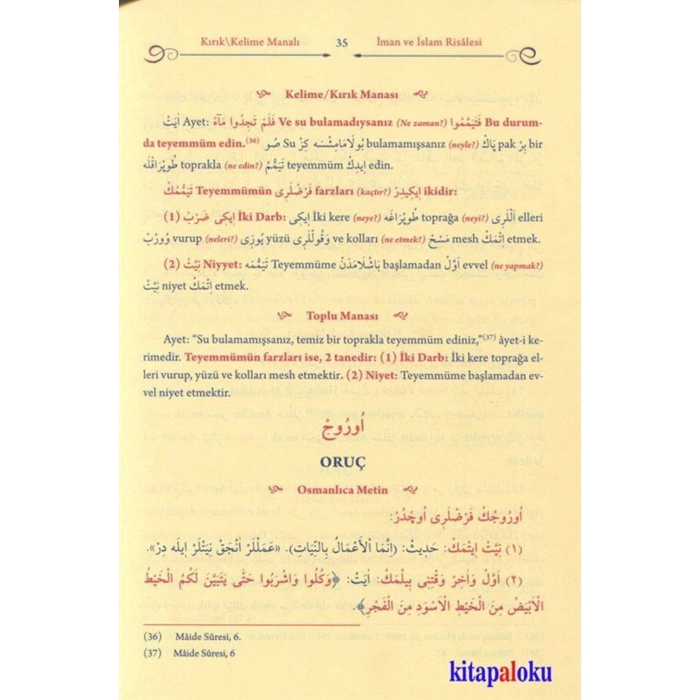 Kırık\Kelime Manalı 35 İman ve İslam Risâlesi
Kelime/Kırık Manası
اٰيَتْ Ayet: فَلَمْ تَجِدُوا مَٓاءً Ve su bulamadıysanız (Ne zaman?) فَتَيَمَّمُوا Bu durum-
da teyemmüm edin.(36) صُو Su بُولَامَامِشْسَه كِزْ bulamamışsanız (neyle?) پَاكْ pak بِرْ bir
طُوپْرَاقْلَه toprakla (ne edin?) تَيَمُّمْ teyemmüm اِيدِكْ edin.
تَيَمُّمُكْ Teyemmümün فَرْضْلَرِى farzları (kaçtır?) اِيكِيدِرْ ikidir:
(1) اِيكِى ضَرْبْ İki Darb: اِيكِى İki kere (neye?) طُوپْرَاغَه toprağa (neyi?) اَللَرِى elleri
وُورُبْ vurup (neleri?) يُوزِى yüzü وَقُوللَرِى ve kolları (ne etmek?) مَسْحْ mesh اِتْمَكْ etmek.
(2) نِيَّتْ Niyyet: تَيَمُّمَه Teyemmüme بَاشْلَامَدَنْ başlamadan اَوَّلْ evvel (ne yapmak?)
نِيَّتْ niyet اِتْمَكْ etmek.
Toplu Manası
Ayet: “Su bulamamışsanız, temiz bir toprakla teyemmüm ediniz,”(37) âyet-i ke-
rimedir. Teyemmümün farzları ise, 2 tanedir: (1) İki Darb: İki kere toprağa el-
leri vurup, yüzü ve kolları mesh etmektir. (2) Niyet: Teyemmüme başlamadan ev-
vel niyet etmektir.
اُورُوجْ
ORUÇ
Osmanlıca Metin
اُورُوجُكْ فَرْضْلَرِى اُوچْدُرْ:
(١) نِيَّتْ اِيتْمَكْ: حَدِيثْ: (اِنَّمَا الْاَعْمَالُ بِالنِّيَّاتِ). «عَمَللَرْ اَنْجَقْ نِيَتْلَرْ اِيلَه دِرْ».
(٢) اَوَّلْ وَاٰخِرْ وَقْتِنِى بِيلْمَكْ: اٰيَتْ: ﴿وَكُلُوا وَاشْرَبُوا حَتّٰى يَتَبَيَّنَ لَكُمُ الْخَيْطُ
الْاَبْيَضُ مِنَ الْخَيْطِ الْاَسْوَدِ مِنَ الْفَجْرِ﴾.
(36) Mâide Sûresi, 6.
(37) Mâide Sûresi, 6
kitapaloku